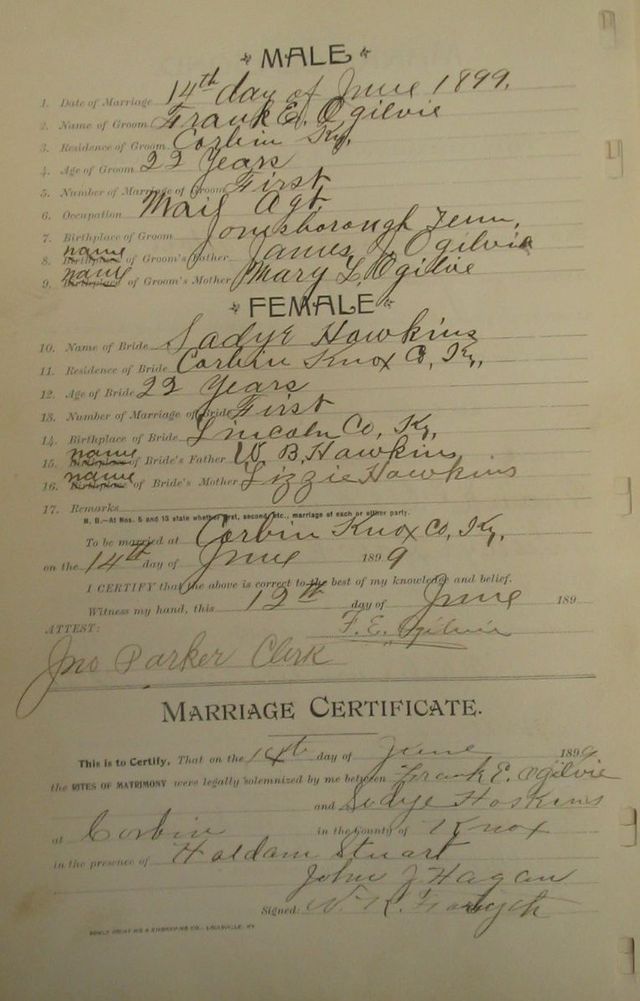 MALE
1. Date of Marriage 14th day of June 1899.
2. Name of Groom Frank E. Ogilvie
3. Residence of Groom Corbin Ky,
4. Age of Groom 22 Years
5. Number of Marriage of Groom First
6. Occupation Mail Agt.
7. Birthplace of Groom Jonesborough Tenn,
8. Birthplace name of Groom's Father James J Ogilvie
9. Birthplace name of Groom's Mother Mary L. Ogilvie
FEMALE
10. Name of Bride Sadye Hawkins
11. Residence of Bride Corbin Knox Co, Ky,
12. Age of Bride 22 Years
13. Number of Marriage of Bride First
14. Birthplace of Bride Lincoln Co, Ky,
15. Birthplace name of Bride's Father W. B. Hawkins
16. Birthplace name of Bride's Mother Lizzie Hawkins
17. Remarks
N. B.—At Nos. 5 and 13 state whether first, second, etc., marriage of each or either party.
To be married at Corbin Knox Co, Ky,
on the 14th day of June 1899
I CERTIFY that the above is correct to the best of my knowledge and belief.
Witness my hand, this 12th day of June 189
ATTEST: F. E. Ogilvie
Jno Parker Clerk
MARRIAGE CERTIFICATE.
This is to Certify, That on the 14th day of June 1899
the RITES OF MATRIMONY were legally solemnized by me between Frank E. Ogilvie
and Sadye Hoskins
at Corbin in the County of Knox
in the presence of Haldam Stuart
John J Hagan
Signed: